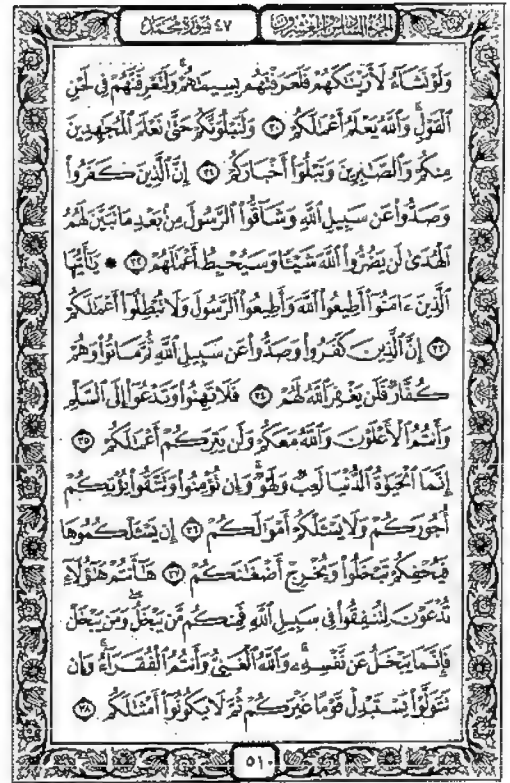 الجزء السادس والعشرون ٤٧ سورة محمد
وَلَوْ نَشَآءُ لَأَرَيْنَٰكَهُمْ فَلَعَرَفْتَهُم بِسِيمَٰهُمْ ۚ وَلَتَعْرِفَنَّهُمْ فِى لَحْنِ
ٱلْقَوْلِ ۚ وَٱللَّهُ يَعْلَمُ أَعْمَٰلَكُمْ ٣٠ وَلَنَبْلُوَنَّكُمْ حَتَّىٰ نَعْلَمَ ٱلْمُجَٰهِدِينَ
مِنكُمْ وَٱلصَّٰبِرِينَ وَنَبْلُوَا۟ أَخْبَارَكُمْ ٣١ إِنَّ ٱلَّذِينَ كَفَرُوا۟
وَصَدُّوا۟ عَن سَبِيلِ ٱللَّهِ وَشَآقُّوا۟ ٱلرَّسُولَ مِنۢ بَعْدِ مَا تَبَيَّنَ لَهُمُ
ٱلْهُدَىٰ لَن يَضُرُّوا۟ ٱللَّهَ شَيْـًٔا وَسَيُحْبِطُ أَعْمَٰلَهُمْ ٣٢ * يَٰٓأَيُّهَا
ٱلَّذِينَ ءَامَنُوٓا۟ أَطِيعُوا۟ ٱللَّهَ وَأَطِيعُوا۟ ٱلرَّسُولَ وَلَا تُبْطِلُوٓا۟ أَعْمَٰلَكُمْ
٣٣ إِنَّ ٱلَّذِينَ كَفَرُوا۟ وَصَدُّوا۟ عَن سَبِيلِ ٱللَّهِ ثُمَّ مَاتُوا۟ وَهُمْ
كُفَّارٌ فَلَن يَغْفِرَ ٱللَّهُ لَهُمْ ٣٤ فَلَا تَهِنُوا۟ وَتَدْعُوٓا۟ إِلَى ٱلسَّلْمِ
وَأَنتُمُ ٱلْأَعْلَوْنَ وَٱللَّهُ مَعَكُمْ وَلَن يَتِرَكُمْ أَعْمَٰلَكُمْ ٣٥
إِنَّمَا ٱلْحَيَوٰةُ ٱلدُّنْيَا لَعِبٌ وَلَهْوٌ ۚ وَإِن تُؤْمِنُوا۟ وَتَتَّقُوا۟ يُؤْتِكُمْ
أُجُورَكُمْ وَلَا يَسْـَٔلْكُمْ أَمْوَٰلَكُمْ ٣٦ إِن يَسْـَٔلْكُمُوهَا
فَيُحْفِكُمْ تَبْخَلُوا۟ وَيُخْرِجْ أَضْغَٰنَكُمْ ٣٧ هَٰٓأَنتُمْ هَٰٓؤُلَآءِ
تُدْعَوْنَ لِتُنفِقُوا۟ فِى سَبِيلِ ٱللَّهِ فَمِنكُم مَّن يَبْخَلُ ۖ وَمَن يَبْخَلْ
فَإِنَّمَا يَبْخَلُ عَن نَّفْسِهِۦ ۚ وَٱللَّهُ ٱلْغَنِىُّ وَأَنتُمُ ٱلْفُقَرَآءُ ۚ وَإِن
تَتَوَلَّوْا۟ يَسْتَبْدِلْ قَوْمًا غَيْرَكُمْ ثُمَّ لَا يَكُونُوٓا۟ أَمْثَٰلَكُم ٣٨
٥١٠